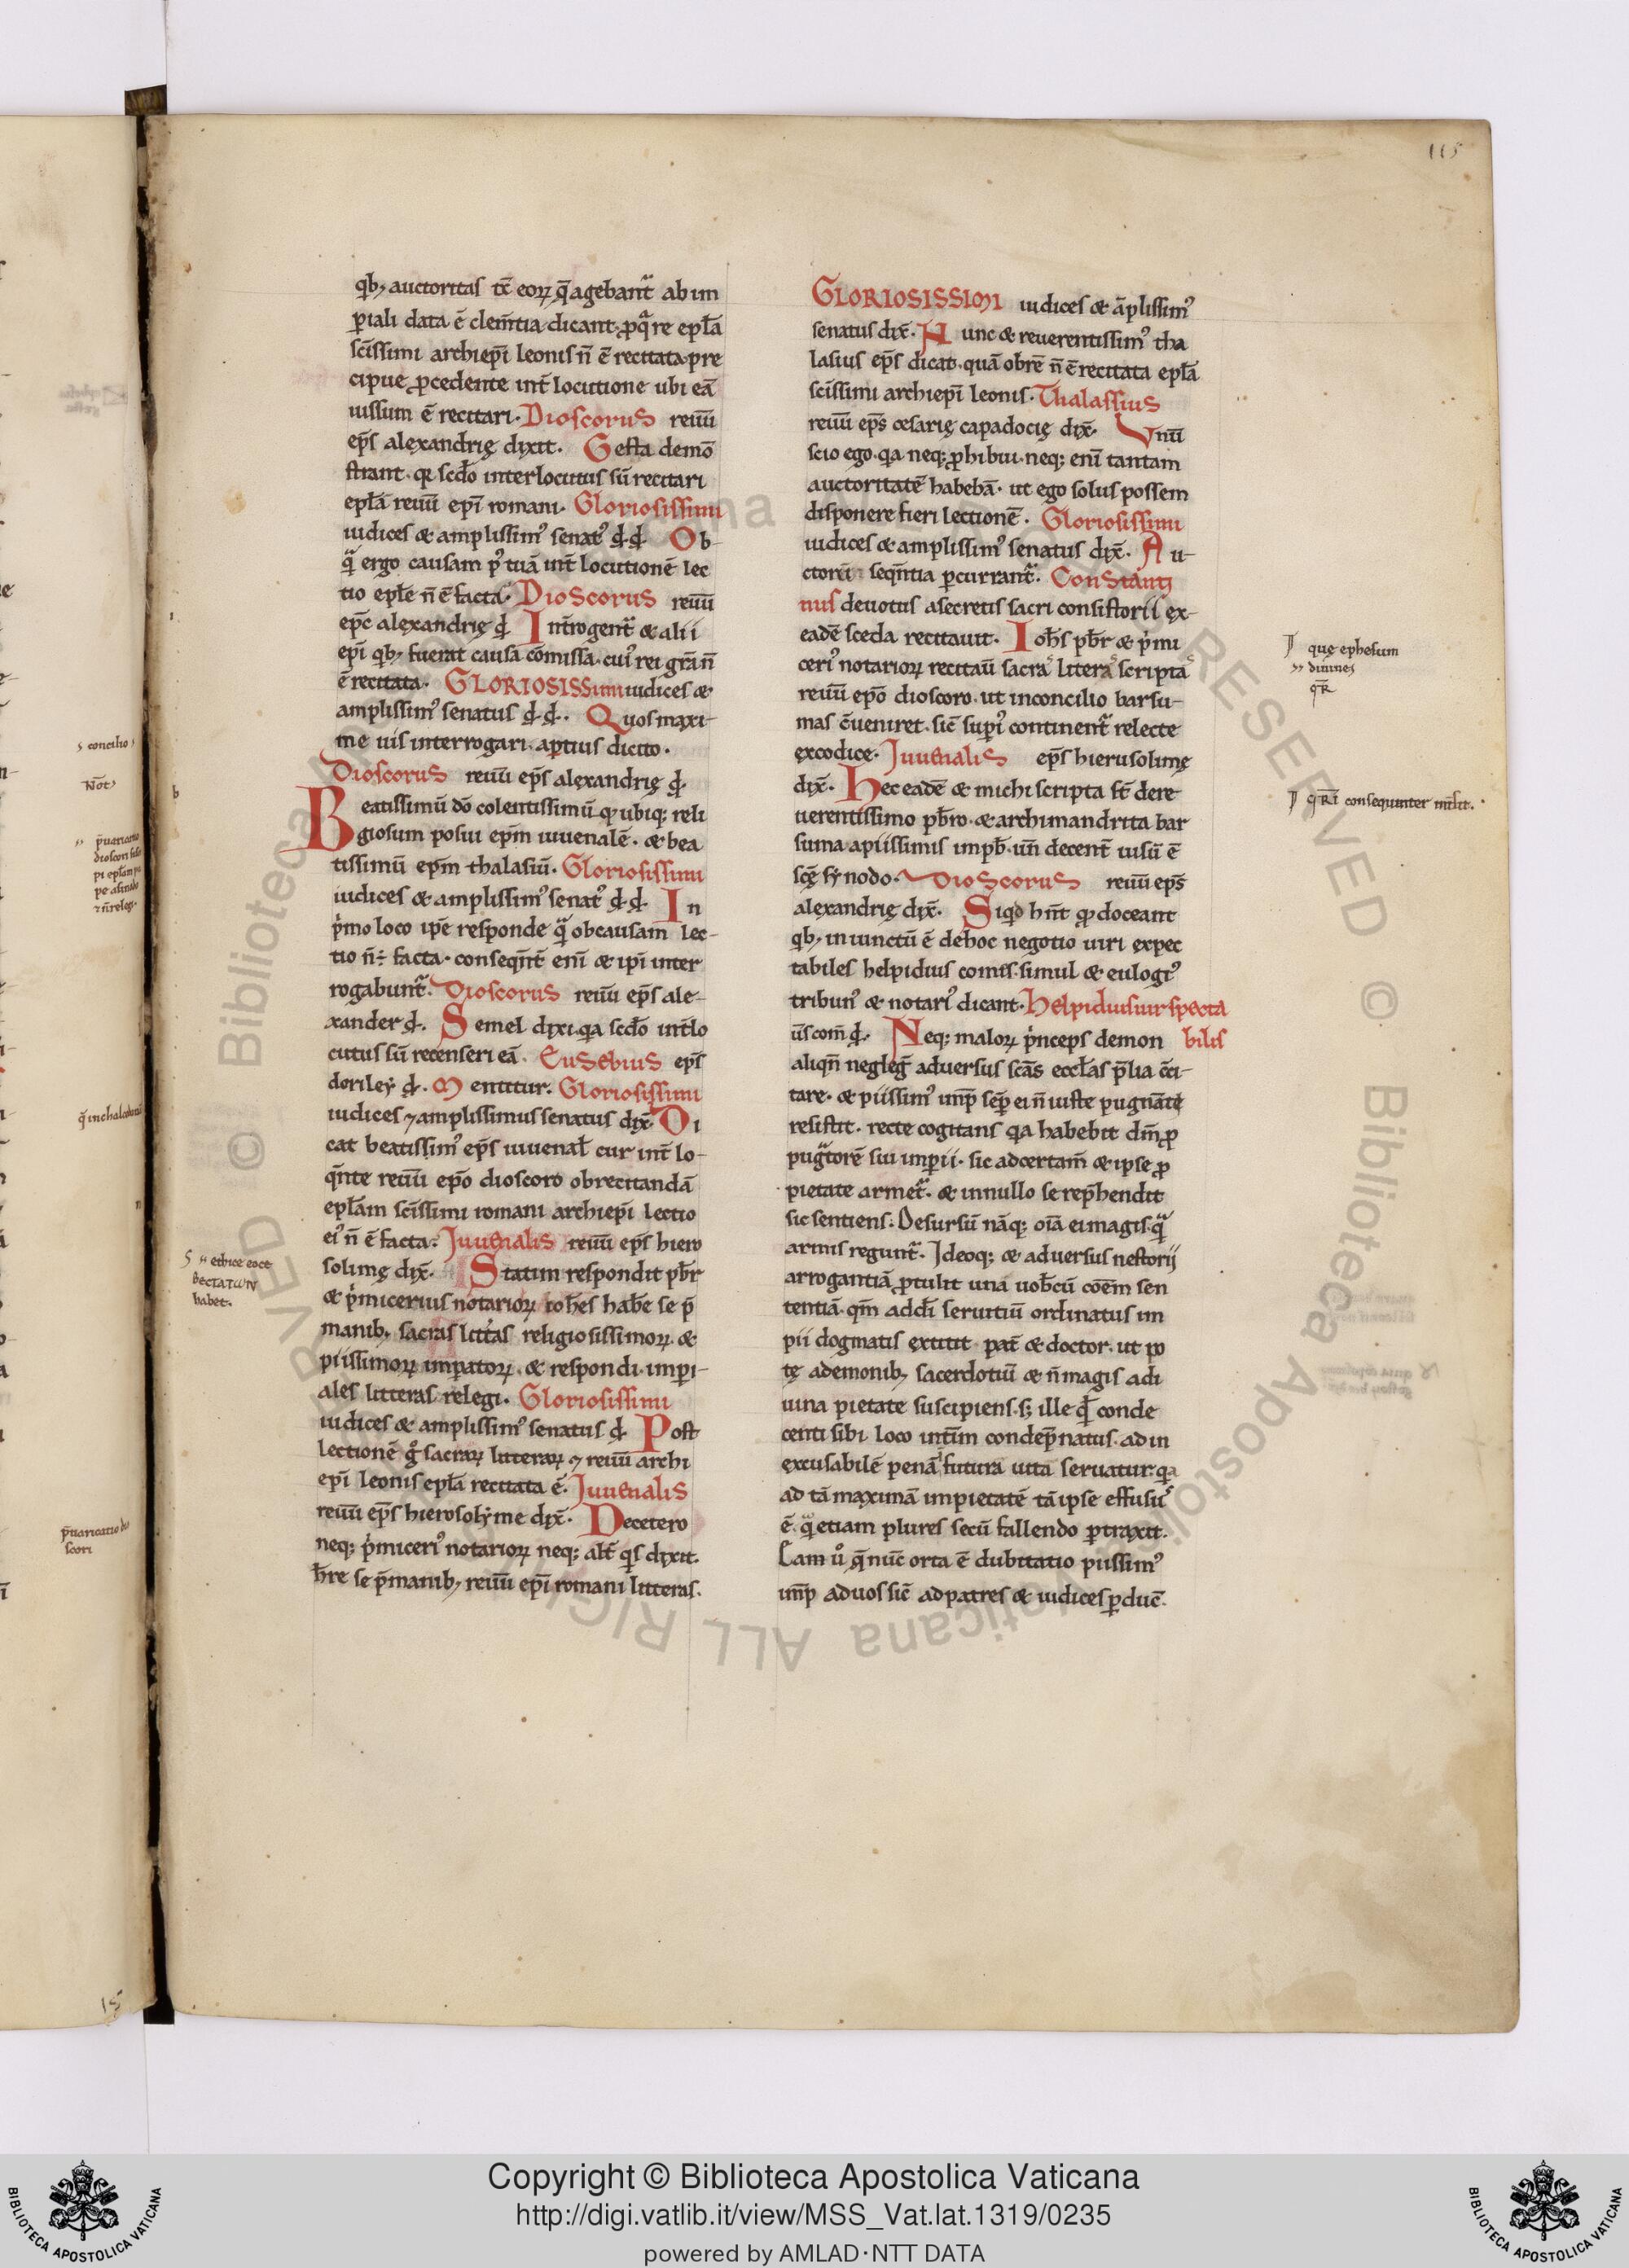 115
qb; auctoritas tc̄ eoꝝ q̄ agebant᷑ ab im
ꝑiali data ē clem̄tia dicant. ꝓ qua re epl̄a
sc̄issimi archiepī leonis n̄ ē recitata. pre
cipue ꝓcedente int̄ locutione ubi eā
iussum ē recitari. Dioscorus reuū
ep̄s alexandrię dixit. Gesta demō
strant. qꝛ scd̄o interlocutus sū recitari
epl̄ā reuū epī romani. Gloriosissimi
iudices & amplissimꝰ senatꝰ đđ Ob-
qͣ ergo causam pꝰ tuā int̄ locutionē lec
tio epl̄e n̄ ē facta. Dioscorus reuū
epc̄ alexandrię đ Int̄rogent᷑ & alii
epī qb; fuerat causa cōmissa. cuiꝰ rei grā n̄
ē recitata. GLORIOSISSimi iudices &
amplissimꝰ senatus đđ. Quos maxi-
me uis interrogari. aꝑtius dicito.
Dioscorus reuū ep̄s alexandrię đ
Beatissimū dō colentissimū qͥ ubiq; reli
giosum posui ep̄m iuuenalē. & bea
tissimū ep̄m thalasiū. Gloriosissimi
iudices & amplissimꝰ senatꝰ đđ In
pͥmo loco ip̄e responde qͣ ob causam lec-
tio n̄ ÷ facta. conseqn̄t̄ enī & ipī inter
rogabunt᷑. Dioscorus reuū ep̄s ale-
xander đ. Semel dixi. qa scd̄o int̄lo
cutus sū recenseri eā. Eusebius ep̄s
doriley đ. Mentitur. Gloriosissimi
iudices ⁊ amplissimus senatus dix̄. Di
cat beatissimꝰ ep̄s iuuenal̄ cur int̄ lo-
qn̄te reuū epō dioscoro ob recitandā
epl̄am sc̄issimi romani archiepī lectio
eiꝰ n̄ ē facta. Juuenalis reuū ep̄s hiero
solimę dix̄. Statim respondit pb̄r
& pͥmicerius notarioꝝ ioh̄es hab̄e se p̄
manib; sacras litt̄as religiosissimoꝝ &
piissimoꝝ imꝑatoꝝ. & respondi. imꝑi-
ales litteras relegi. Gloriosissimi
iudices & amplissimꝰ senatus đ. Post
lectionē gͦ sacraꝝ litteraꝝ ⁊ reuū archi
epī leonis epl̄a recitata ē. Juuenalis
reuū ep̄s hierosolẏme dix̄. Decetero
neq; pͥmiceriꝰ notarioꝝ neq; alt̄ qͥs dixit.
h̄re se p̄manib; reuū epī romani litteras.
GLORIOSISSIMI iudices & āplissimꝰ
senatus dix̄. Nunc & reuerentissimꝰ tha
lasius ep̄s dicat. quā ob rē n̄ ē recitata epl̄a
sc̄issimi archiepī leonis. Thalassius
reuū ep̄s cesarię capadocię dix̄. Unū
scio ego. qa neq; ꝓhibui. neq; enī tantam
auctoritatē habebā. ut ego solus possem
disponere fieri lectionē. Gloriosissimi
iudices & amplissimꝰ senatus dix̄. Au-
ctorū seqn̄tia ꝑcurrant᷑. Constanti
nus deuotus a secretis sacri consistorii ex-
eadē sceda recitauit. Ioh̄s pb̄r & pͥmi
ceriꝰ notarioꝝ recitaū sacraˢ literaˢ scriptaˢ
reuū epō dioscoro. ut in concilio barsu-
mas c̄ueniret. sic̄ suꝑiꝰ continent᷑ relecte
ex codice. Juuenalis ep̄s hierusolimę
dix̄. Hec eadē & michi scripta st̄ de re
uerentissimo pb̄ro. & archimandrita bar
suma. a piissimis impb̄. un̄ decent̄ uisū ē
sc̄ę sẏnodo. Dioscorus reuū ep̄s
alexandrię dix̄. Siqd hn̄t qͥ doceant
qb; iniunctū ē de hoc negotio uiri expec
tabiles helpidius comis. simul & eulogiꝰ
tribunꝰ & notariꝰ dicant. Helpidius uir specta
ūs com̄ đ. Neq; maloꝝ pͥnceps demon bilis
aliqn̄ negleḡ aduersus scās eccl̄as p̄lia c̄ci-
tare. & piissimꝰ imp̄ sēꝑ ei n̄ iuste pugnāte
resistit. recte cogitans qa habebit dm̄ ꝓ
pugͣtorē sui imꝑii. sic ad certam̄ & ipse ꝓ
pietate armet᷑. & in nullo se rep̄hendit
sic sentiens. Desursū nāq; oīā ei magis qͣ
armis regunt᷑. Ideoq; & aduersus nestorij
arrogantiā ꝓtulit unā uob̄cū cōēm sen
tentiā. qm̄ addī seruitiū ordinatus im
pii dogmatis extitit pat̄ & doctor. ut po
tę a demonib; sacerdotiū & n̄ magis a di
uina pietate suscipiens. s; ille qͥđ conde
centi sibi loco int̄im condep̄natus. ad in
excusabilē penā ī futura uita seruatur. qa
ad tā maximā impietatē tā ipse effusuˢ
ē. qͣ etiam plures secū fallendo ꝑtraxit.
Cam ū q̄ nūc orta ē dubitatio piissimꝰ
imp̄ ad uos sic̄ ad patres & iudices ꝑduc̄.
que ephesum
diuines
qR̄
qR̄i consequnter mīsit.
ethice eoce
habet.
concilio
Not̄
p̄uaricatio
p̄uaricatio dio
scori
15
Copyright © Biblioteca Apostolica Vaticana
http://digi.vatlib.it/view/MSS_Vat.lat.1319/0235
powered by AMLAD·NTT DATA
BIBLIOTECA APOSTOLICA VATICANA
BIBLIOTECA APOSTOLICA VATICANA